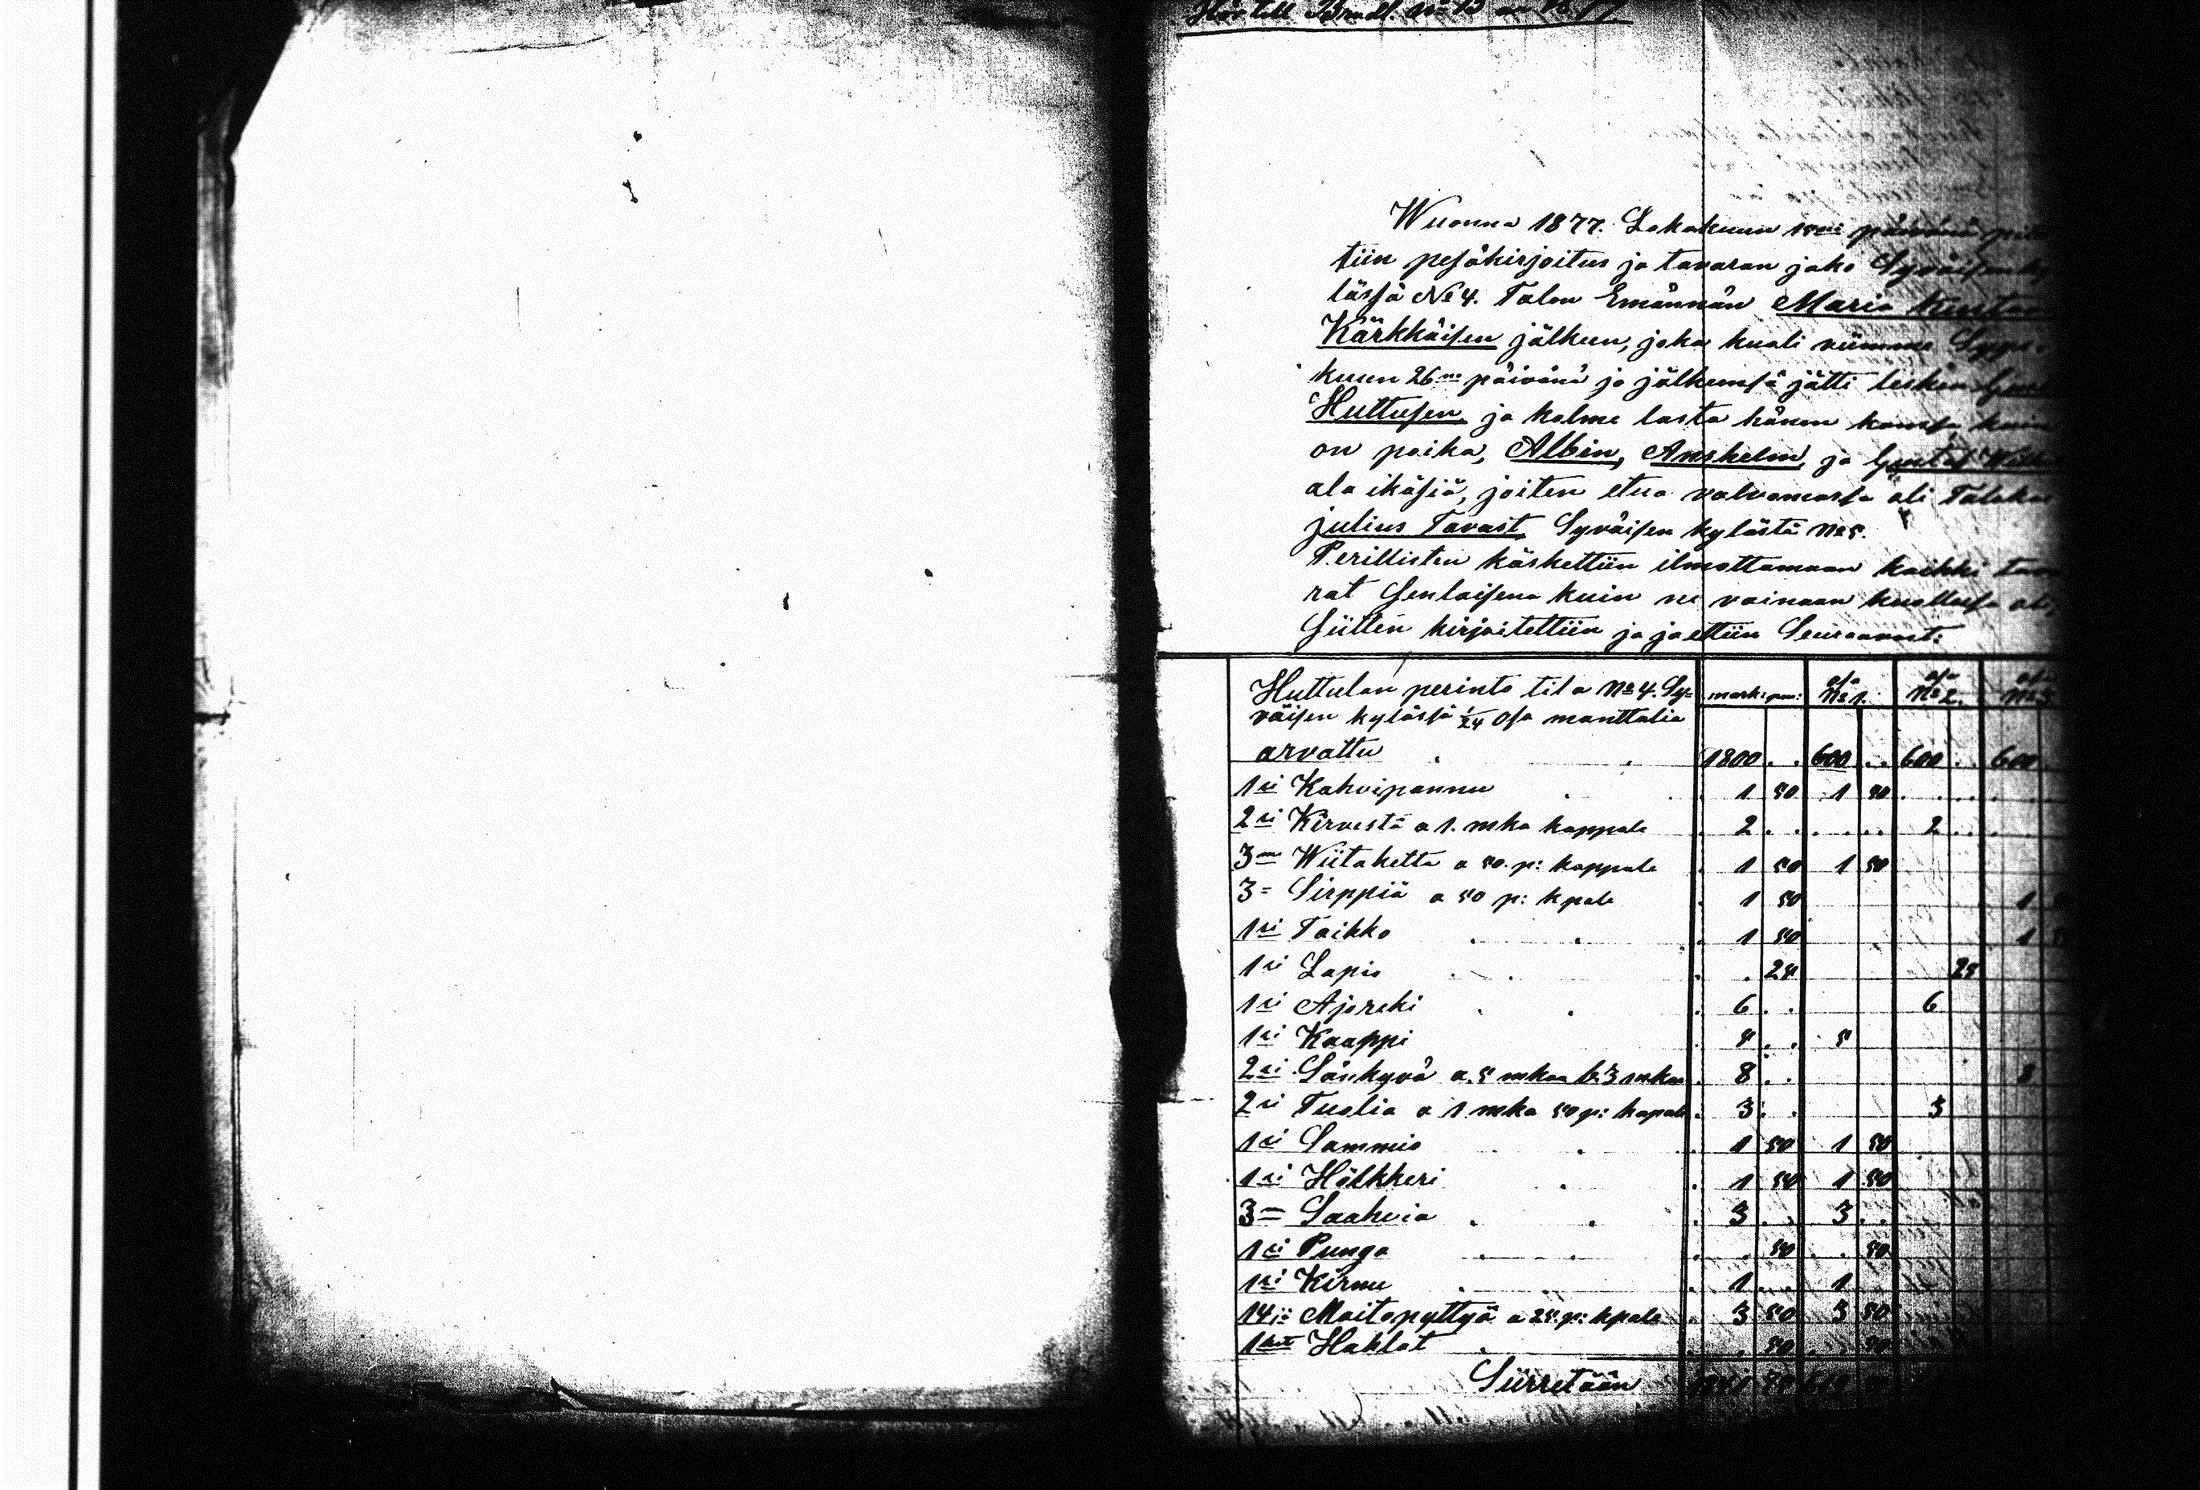 Hör till Bmdl. № 13 an 1877
Wuonna 1877. Lokakuun 15nä päivänä pidet
tiin pesäkirjoitus ja tavaran jako Syväisenky
lässä № 4. Talon Emännän Maria Kustaa
Kärkkäisen jälkeen, joka kuoli viimme Syys-
kuun 26na päivänä ja jälkeensä jätti lesken
Huttusen, ja kolme lasta hänen kanssa, kuin
on poika, Albin, Anshelm, ja Gustaf
ala ikäsiä, joiten etua valvomassa oli
Julius Tavast, Syväisen kylästä № 5.
Perillisten käskettiin ilmottamaan kaikki tava
rat Senlaisena kuin ne vainaan kuollessa oli,
Siitten kirjoitettiin ja jaettiin Seuraavast:
Huttulan perinto tila № 4. Sy= mark: pen: osa № 1. osa № 2. osa № 3
väisen kylässä 1/24 Osa manttalia
arvattu . . 1800 . . 600 . . 600 . . 600
1si Kahvipannu . . 1 50 1 50
2si Kirvestä a 1. mka kappale . 2 . . 2 . .
3me Wiitaketta a 50. p: kappale . 1 50 1 50
3= Sirppiä a 50 p: kpale . 1 50 1
1si Taikko . . . 1 50 1
1si Lapio . . . . 25 25
1si Ajoreki . . . 6 . . 6
1si Kaappi . 5 . . 5
2si Sänkyvä a. 5 mkaa b. 3 mkaa . 8 . . 8
2si Tuolia a 1 mka 50 p: kapale . 3 . . 3
1si Sammio . . . 1 50 1 50
1si Hölkkeri . . 1 50 1 50
3= Saahvia . . . 3 . . 3 . .
1si Punga . . . . 50 . 50
1si Kirnu . . . 1 . . 1
14;ä Maitopyttyä a 25. p: kpale . 3 50 3 50
1ket Haklat . . 50 . 50
Siirretään